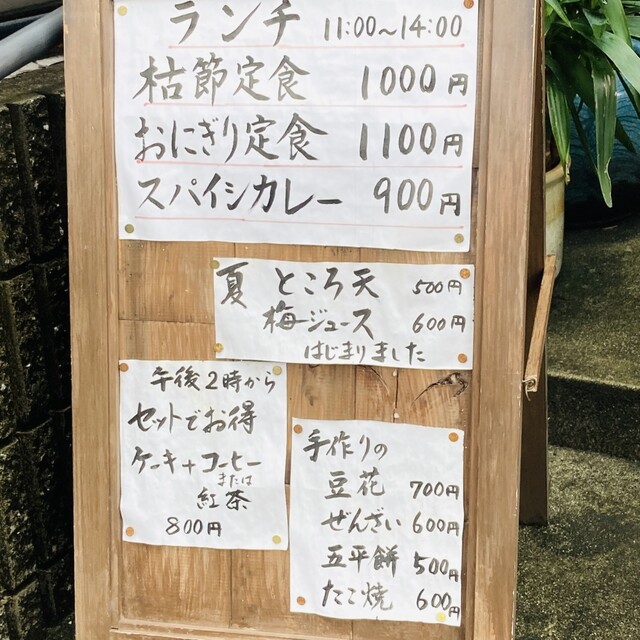 ランチ 11:00~14:00
枯節定食 1000円
おにぎり定食 1100円
スパイシカレー 900円
夏 ところ天 500円
梅ジュース 600円
はじまりました
午後2時から
セットでお得
ケーキ+コーヒー
または
紅茶
800円
手作りの
豆花 700円
ぜんざい 600円
五平餅 500円
たこ焼 600円